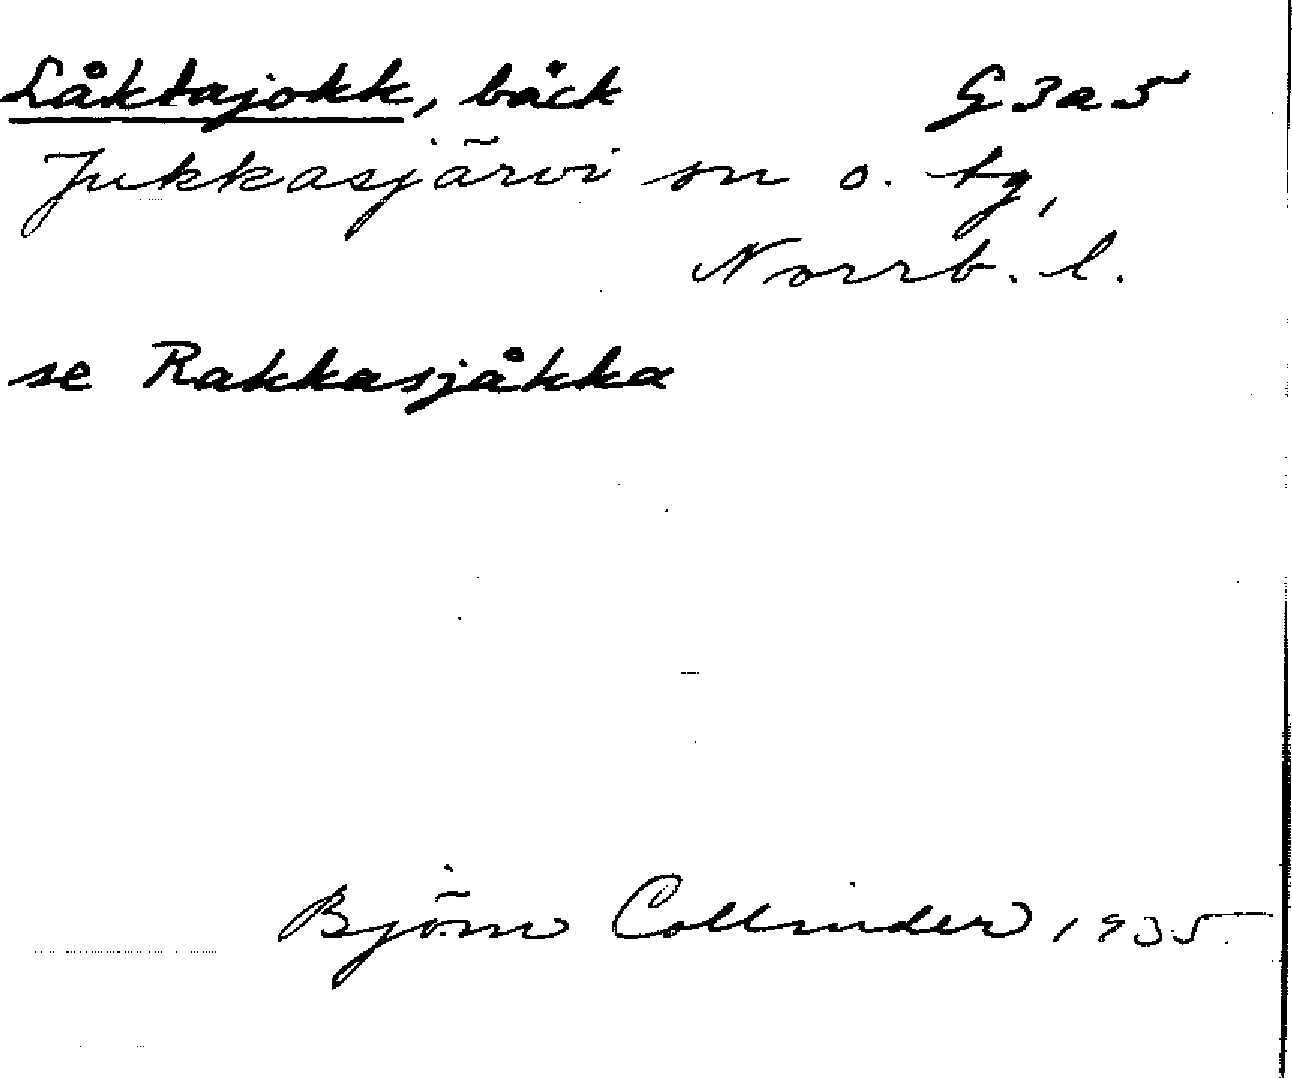 Låktajokk, bäck G 3 a 5
Jukkasjärvi sn o. tg,
Norrb. l.
se Rakkasjåkka
Björn Collinder 1935.